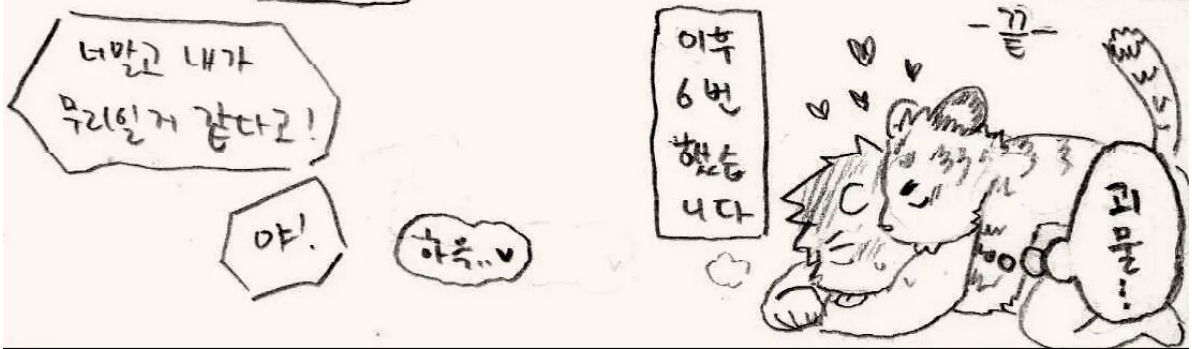 너말고 내가
무리일거 같다고!
야!
하윽..♥
이후
6번
했습
니다
-끝-
괴물..